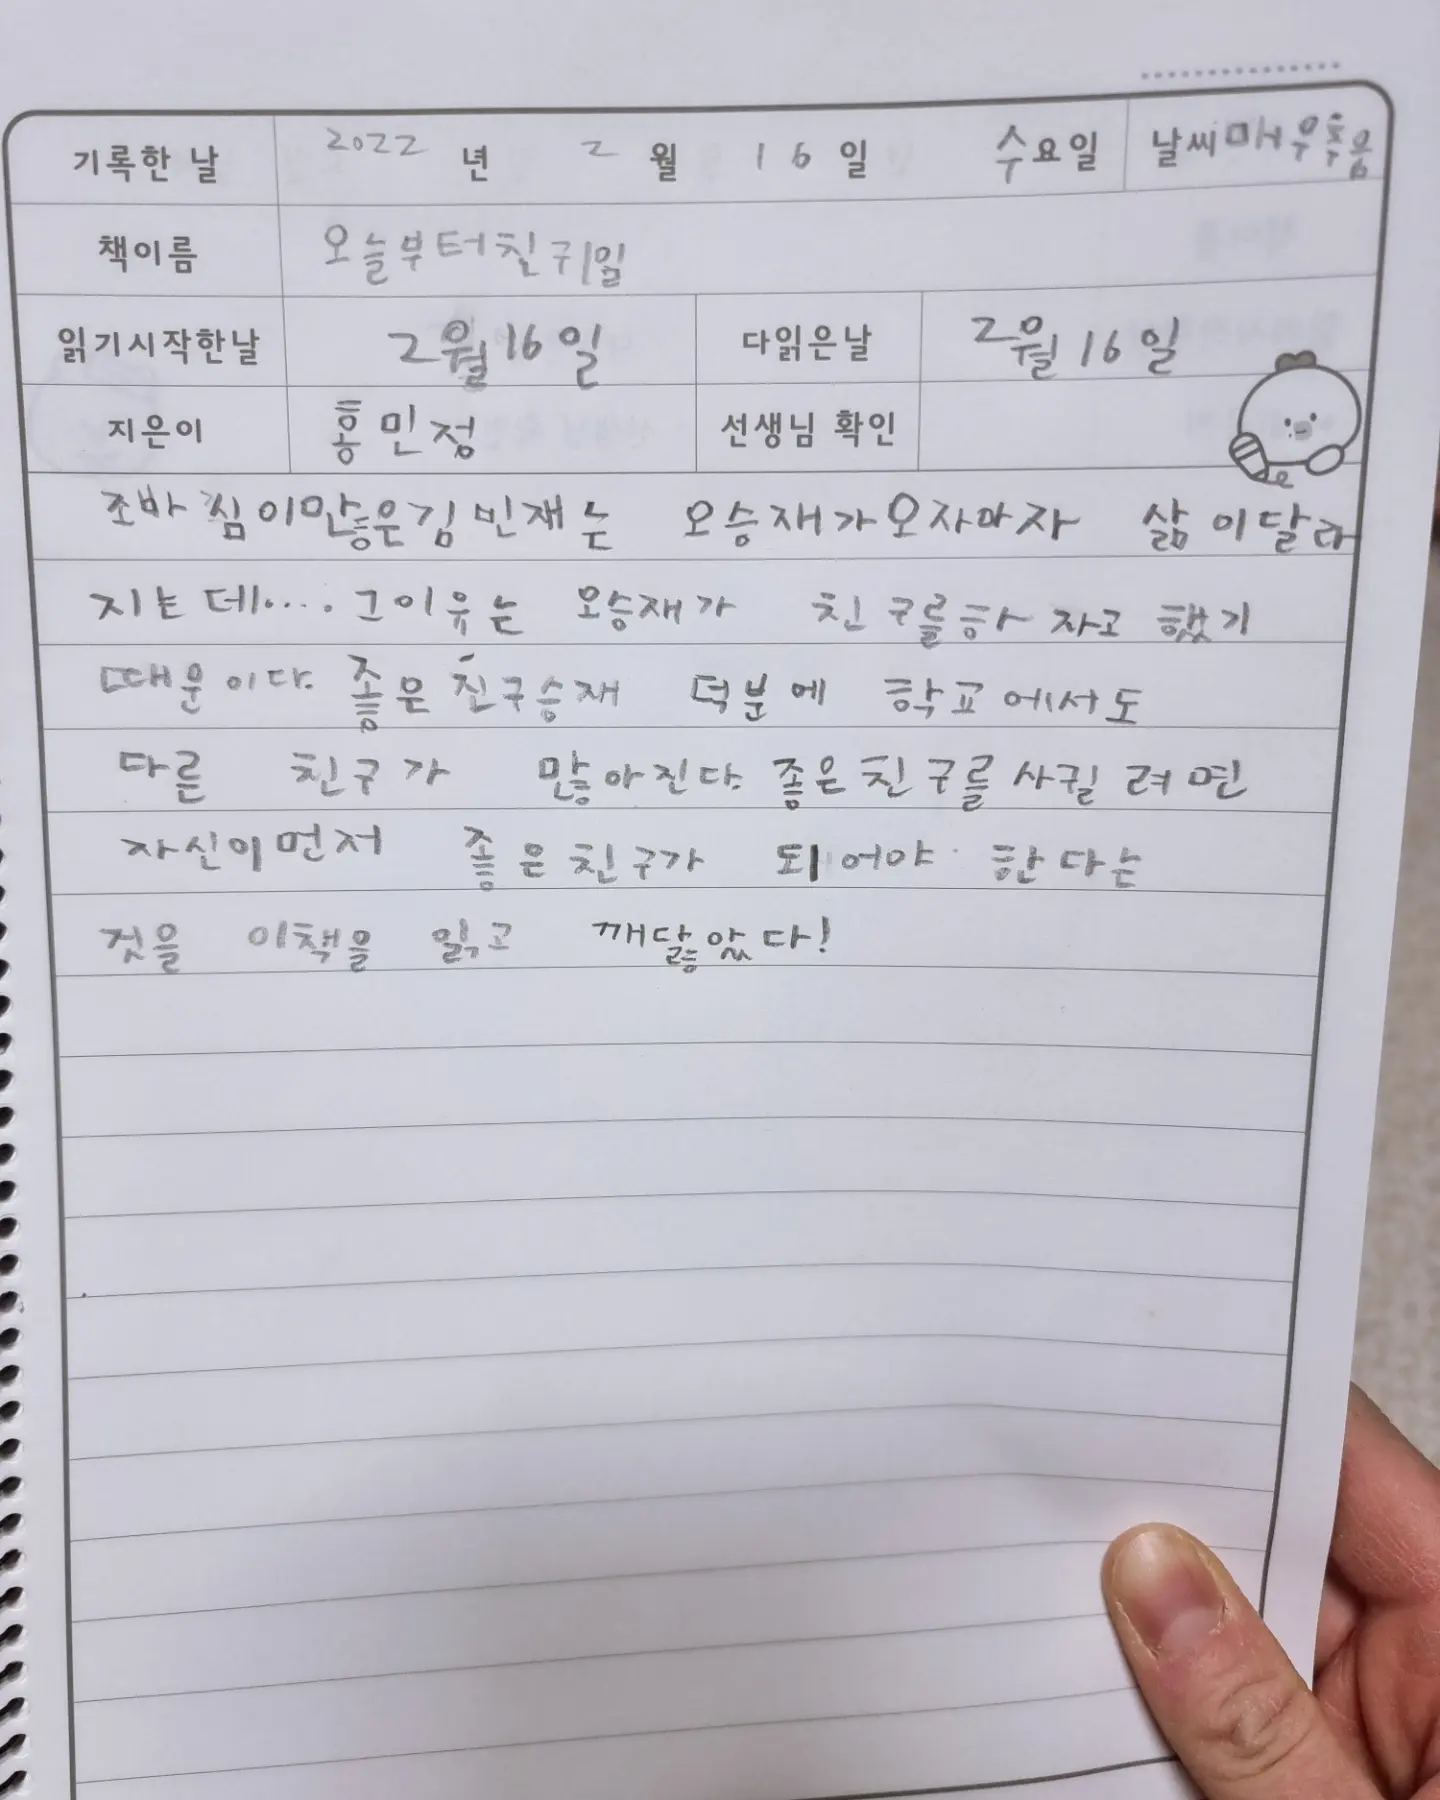 기록한 날 2022 년 2 월 16 일 수요일 날씨 매우추움
책이름 오늘부터친구1일
읽기시작한날 2월16일 다읽은날 2월16일
지은이 홍민정 선생님 확인
조바심이많은김빈재는 오승재가오자마자 삶이달라
지는데.... 그이유는 오승재가 친구를하자고 했기
때문이다. 좋은친구승재 덕분에 학교에서도
다른 친구가 많아진다. 좋은친구를사귈려면
자신이먼저 좋은친구가 되어야 한다는
것을 이책을 읽고 깨닳았다!